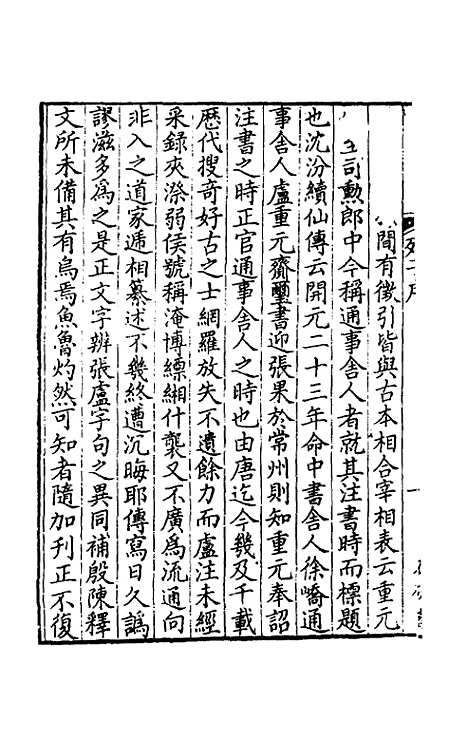 間有徵引皆與古本相合宰相表云重元
司勳郎中今稱通事舍人者就其注書時而標題
也沈汾續仙傳云開元二十三年命中書舍人徐嶠通
事舍人盧重元齎璽書迎張果於常州則知重元奉詔
注書之時正官通事舍人之時也由唐迄今幾及千載
歷代搜奇好古之士網羅放失不遺餘力而盧注未經
采錄夾漈弱侯號稱淹博縹緗什襲又不廣爲流通向
非入之道家遞相纂述不幾終遭沉晦耶傳寫日久譌
謬滋多爲之是正文字辨張盧字句之異同補殷陳釋
文所未備其有烏焉魚魯灼然可知者隨加刊正不復